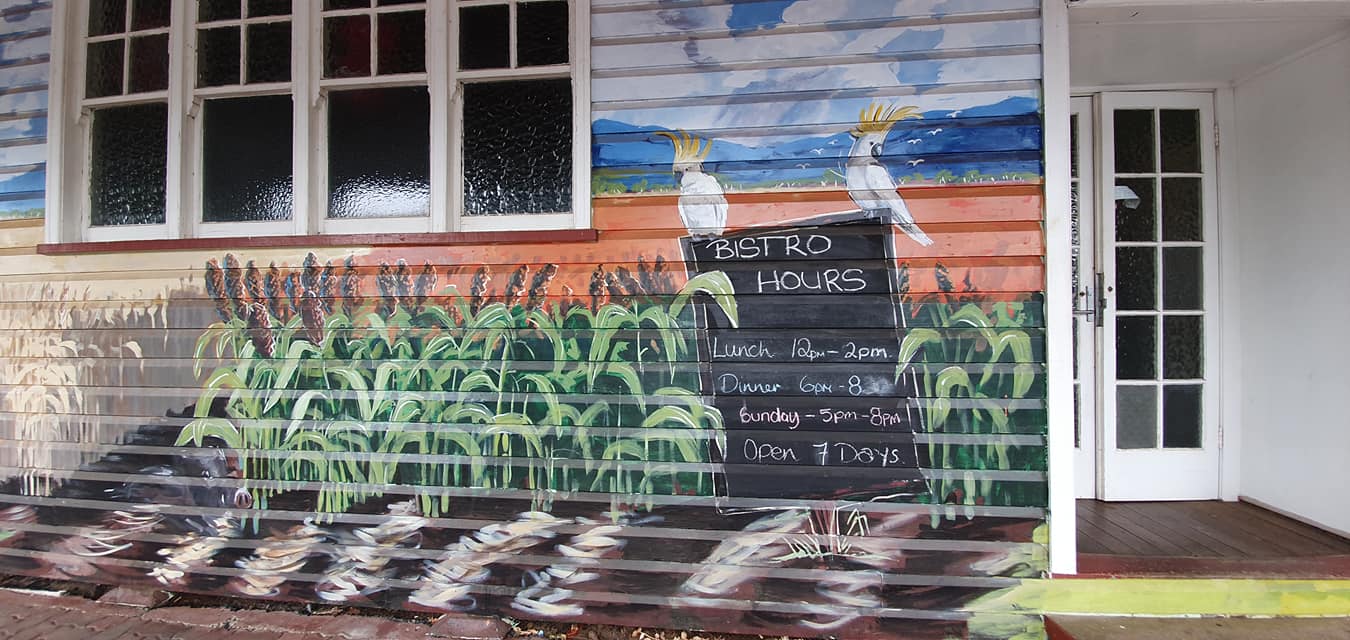 BISTRO
HOURS
Lunch 12pm-2pm.
Dinner 6pm-8
Sunday - 5pm-8pm
Open 7 Days.